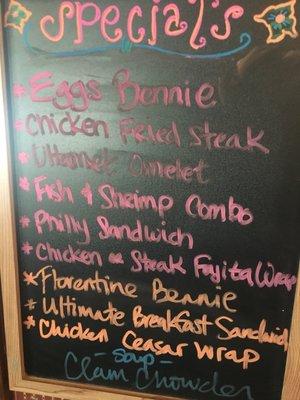 Specials
* Eggs Bennie
* Chicken Fried Steak
* Ultamet Omelet
* Fish & Shrimp Combo
* Philly Sandwich
* Chicken or Steak Fajita Wrap
* Florentine Bennie
* Ultimate Breakfast Sandwich
* Chicken Ceasar Wrap
- Soup -
Clam Chowder